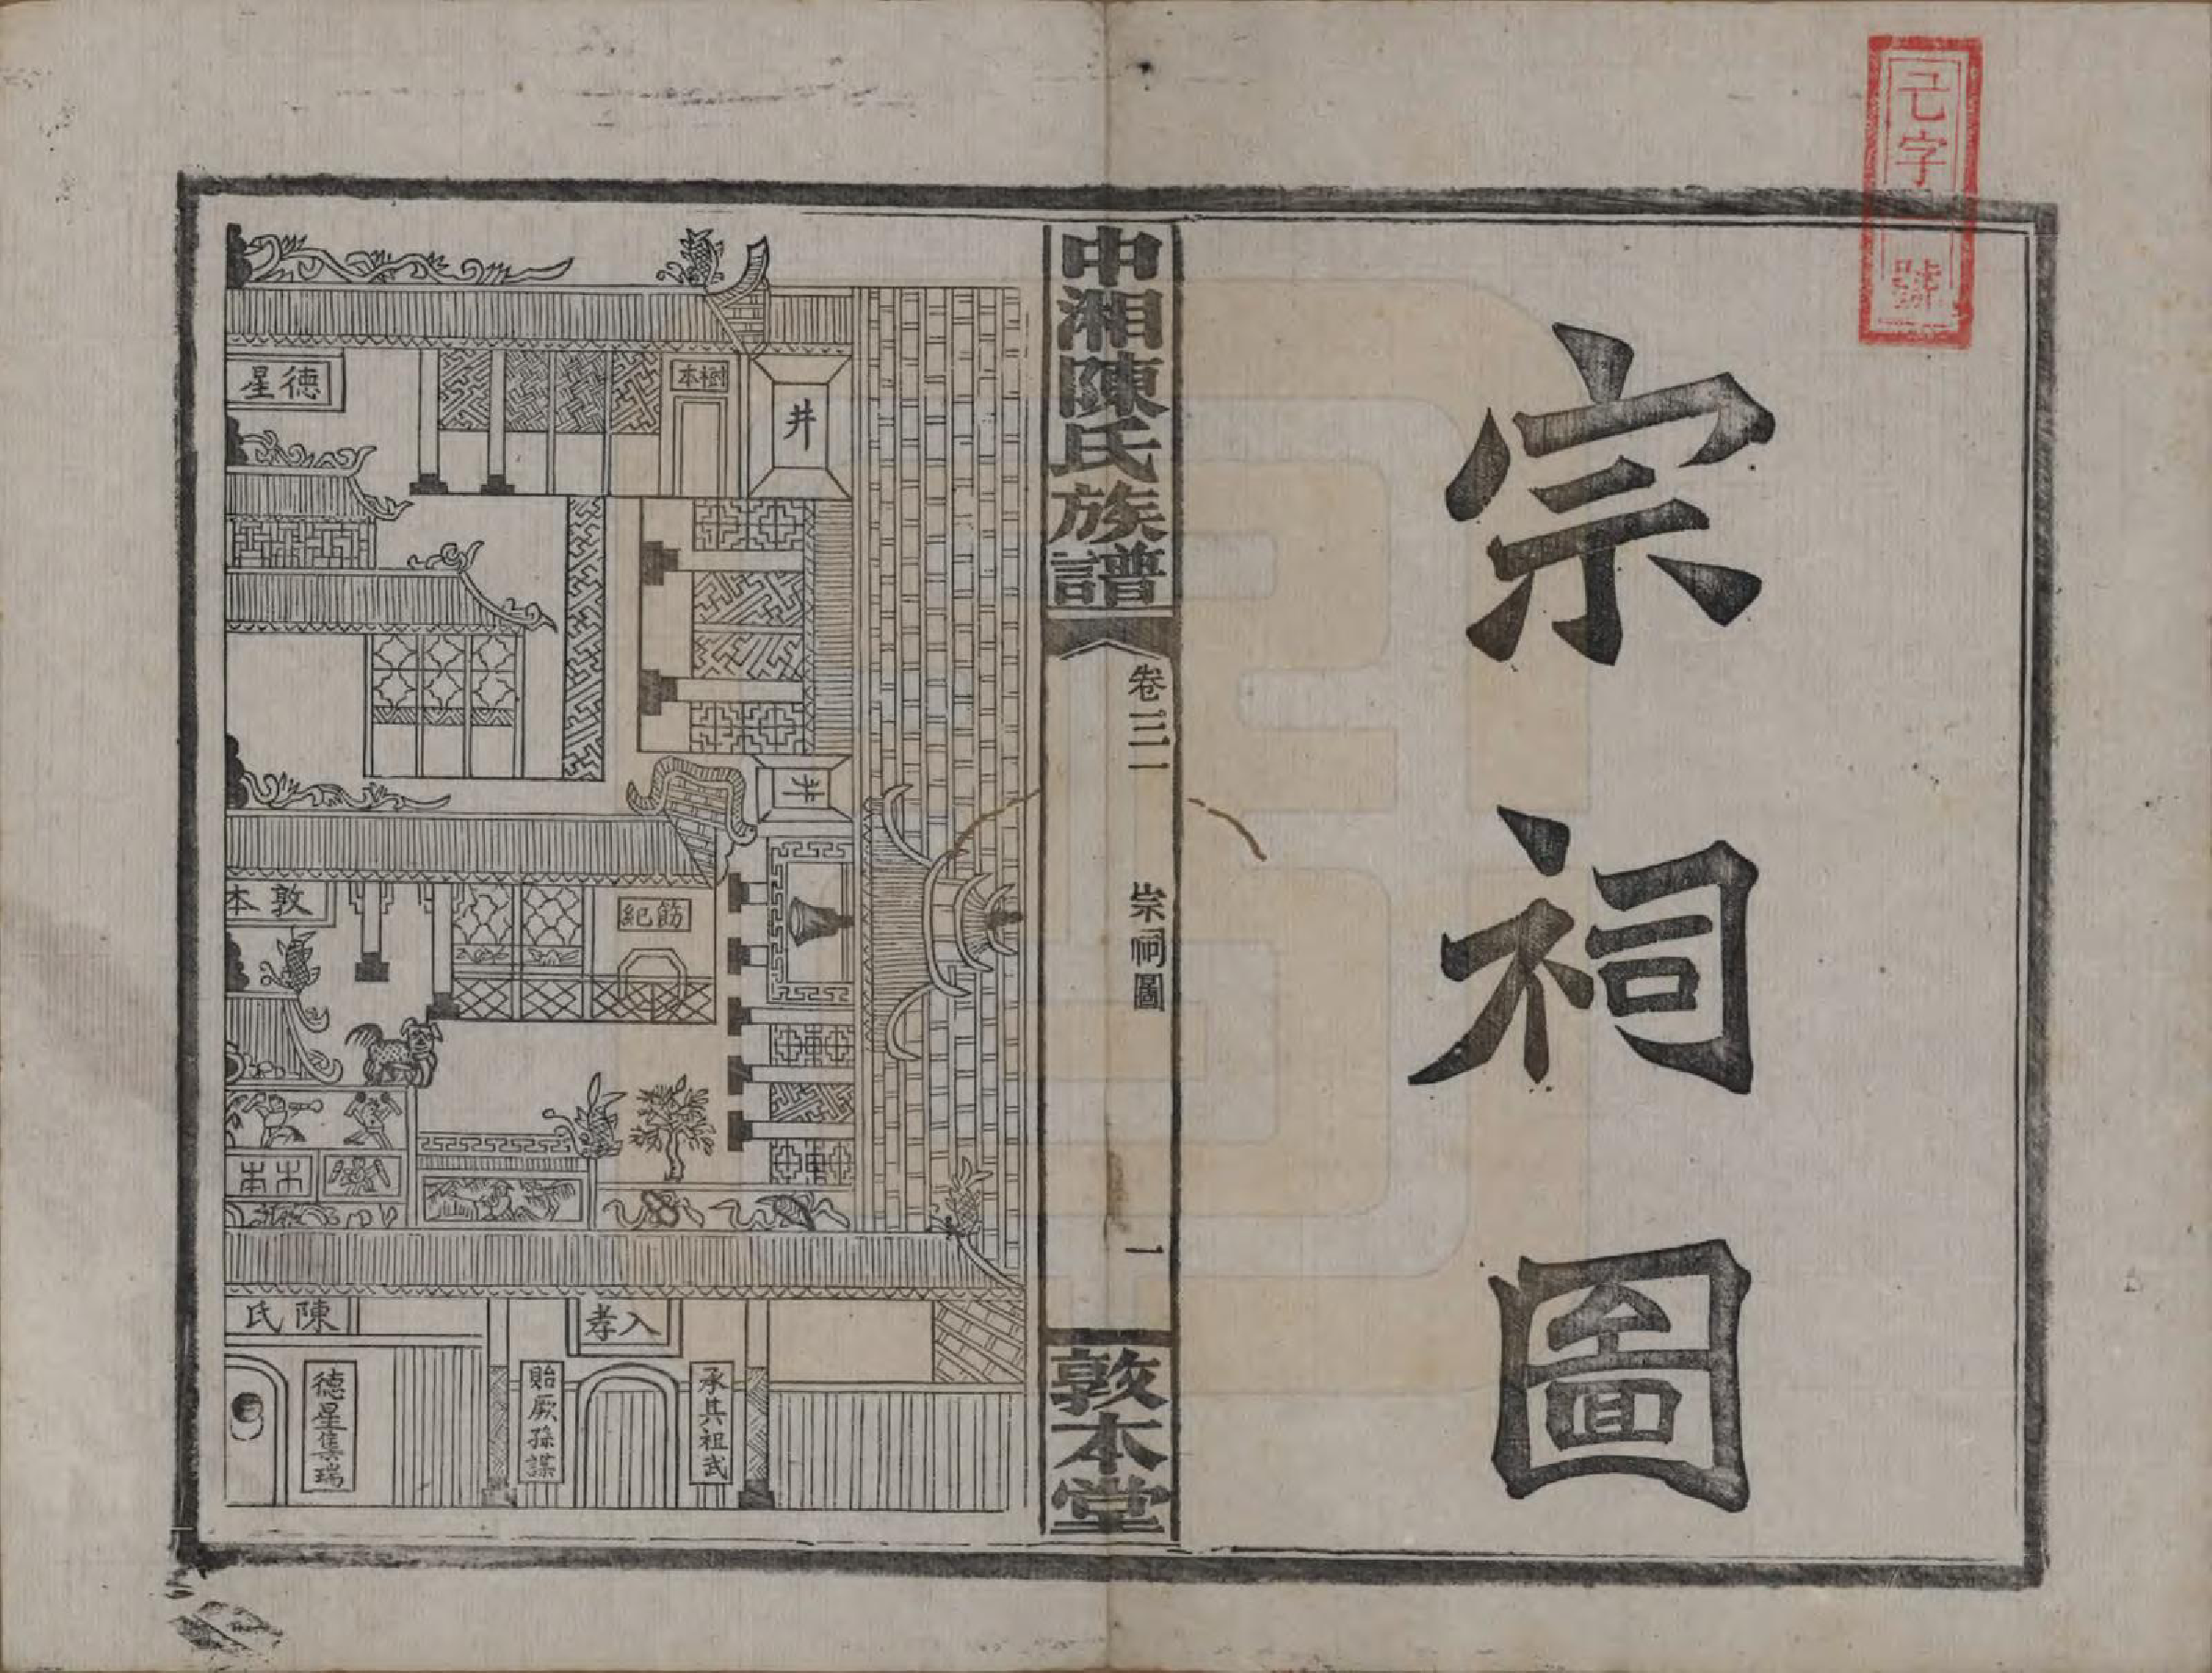 己字一號
宗祠圖
中湘陳氏族譜
卷三
宗祠圖
一
敦本堂
井
樹本
德星
井
飭紀
敦本
木本
入孝
陳氏
承其祖武
貽厥孫謀
德星集瑞